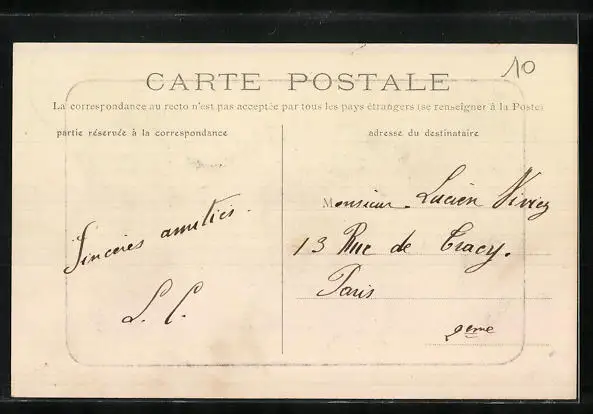 10
CARTE POSTALE
La correspondance au recto n'est pas acceptée par tous les pays étrangers (se renseigner à la Poste)
partie réservée à la correspondance
adresse du destinataire
Monsieur Lucien Viviez
13 Rue de Tracy.
Paris
2eme
Sincères amitiés.
L. C.